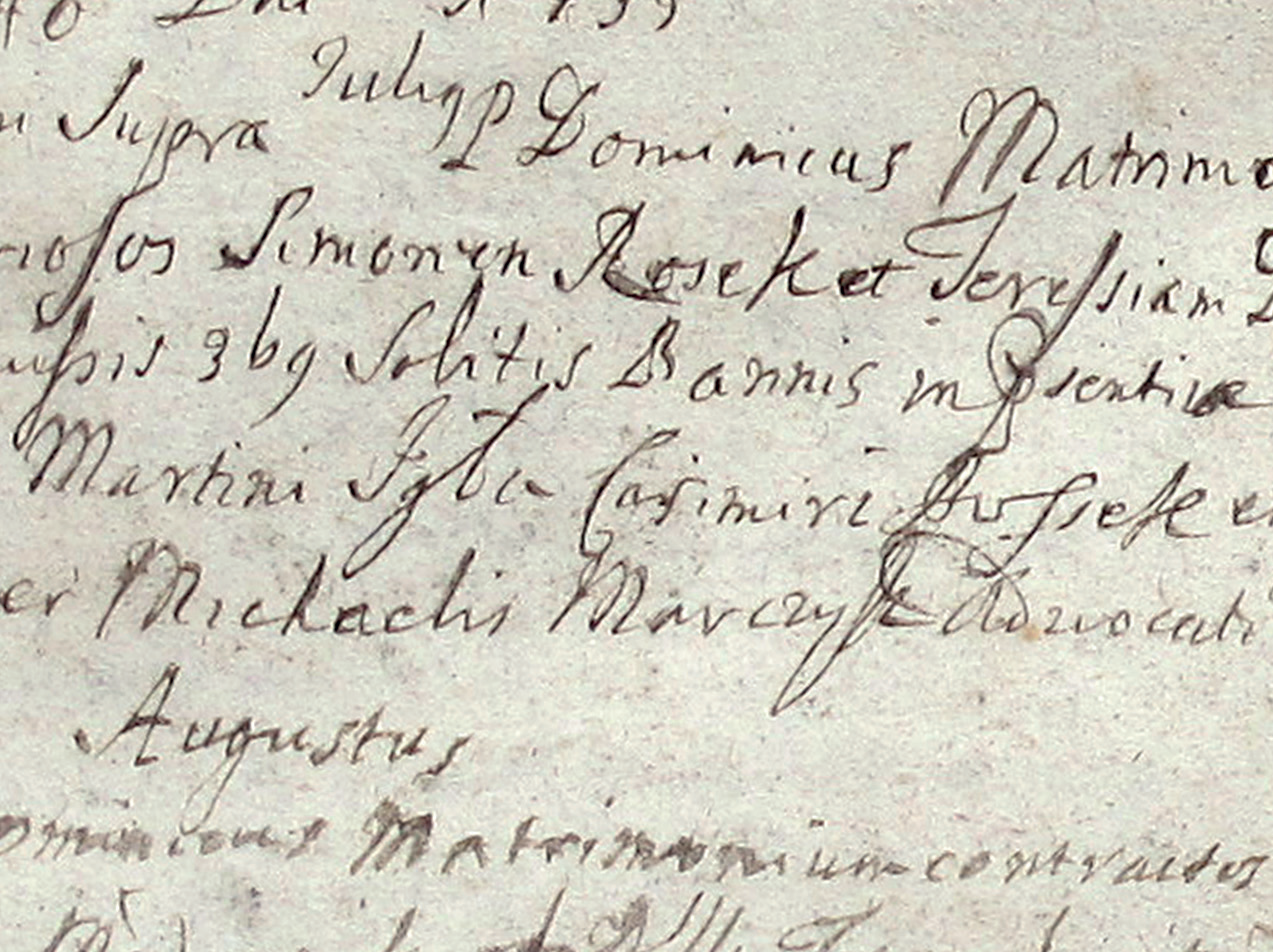 Julij P Dominicus Matrimo
Supra
riosos Simonem Rosek et Teressiam
ussis 3bq Solitis Bannis in Psentia
Martini Igła Casimiri et
er Michaelis Marczyk Advocati
Augustus
ominicus Matrimonium contractos